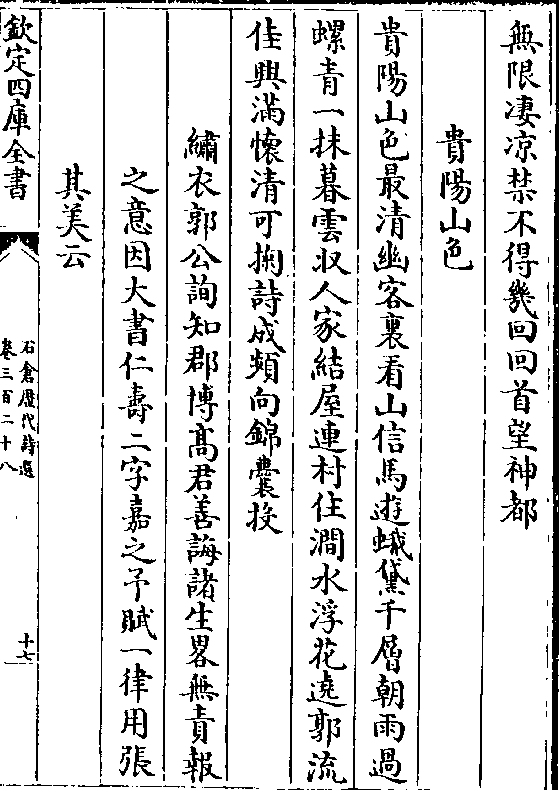 無限凄凉禁不得幾回回首望神都
貴陽山色
貴陽山色最清幽客裏看山信馬遊蛾黛千層朝雨過
螺青一抹暮雲収人家結屋連村住澗水浮花遶郭流
佳興滿懐清可掬詩成頻向錦囊投
繡衣郭公詢知郡博髙君善誨諸生畧無責報
之意因大書仁壽二字嘉之予賦一律用張
其美云
欽定四庫全書
石倉歷代詩選
卷三百二十八
十七